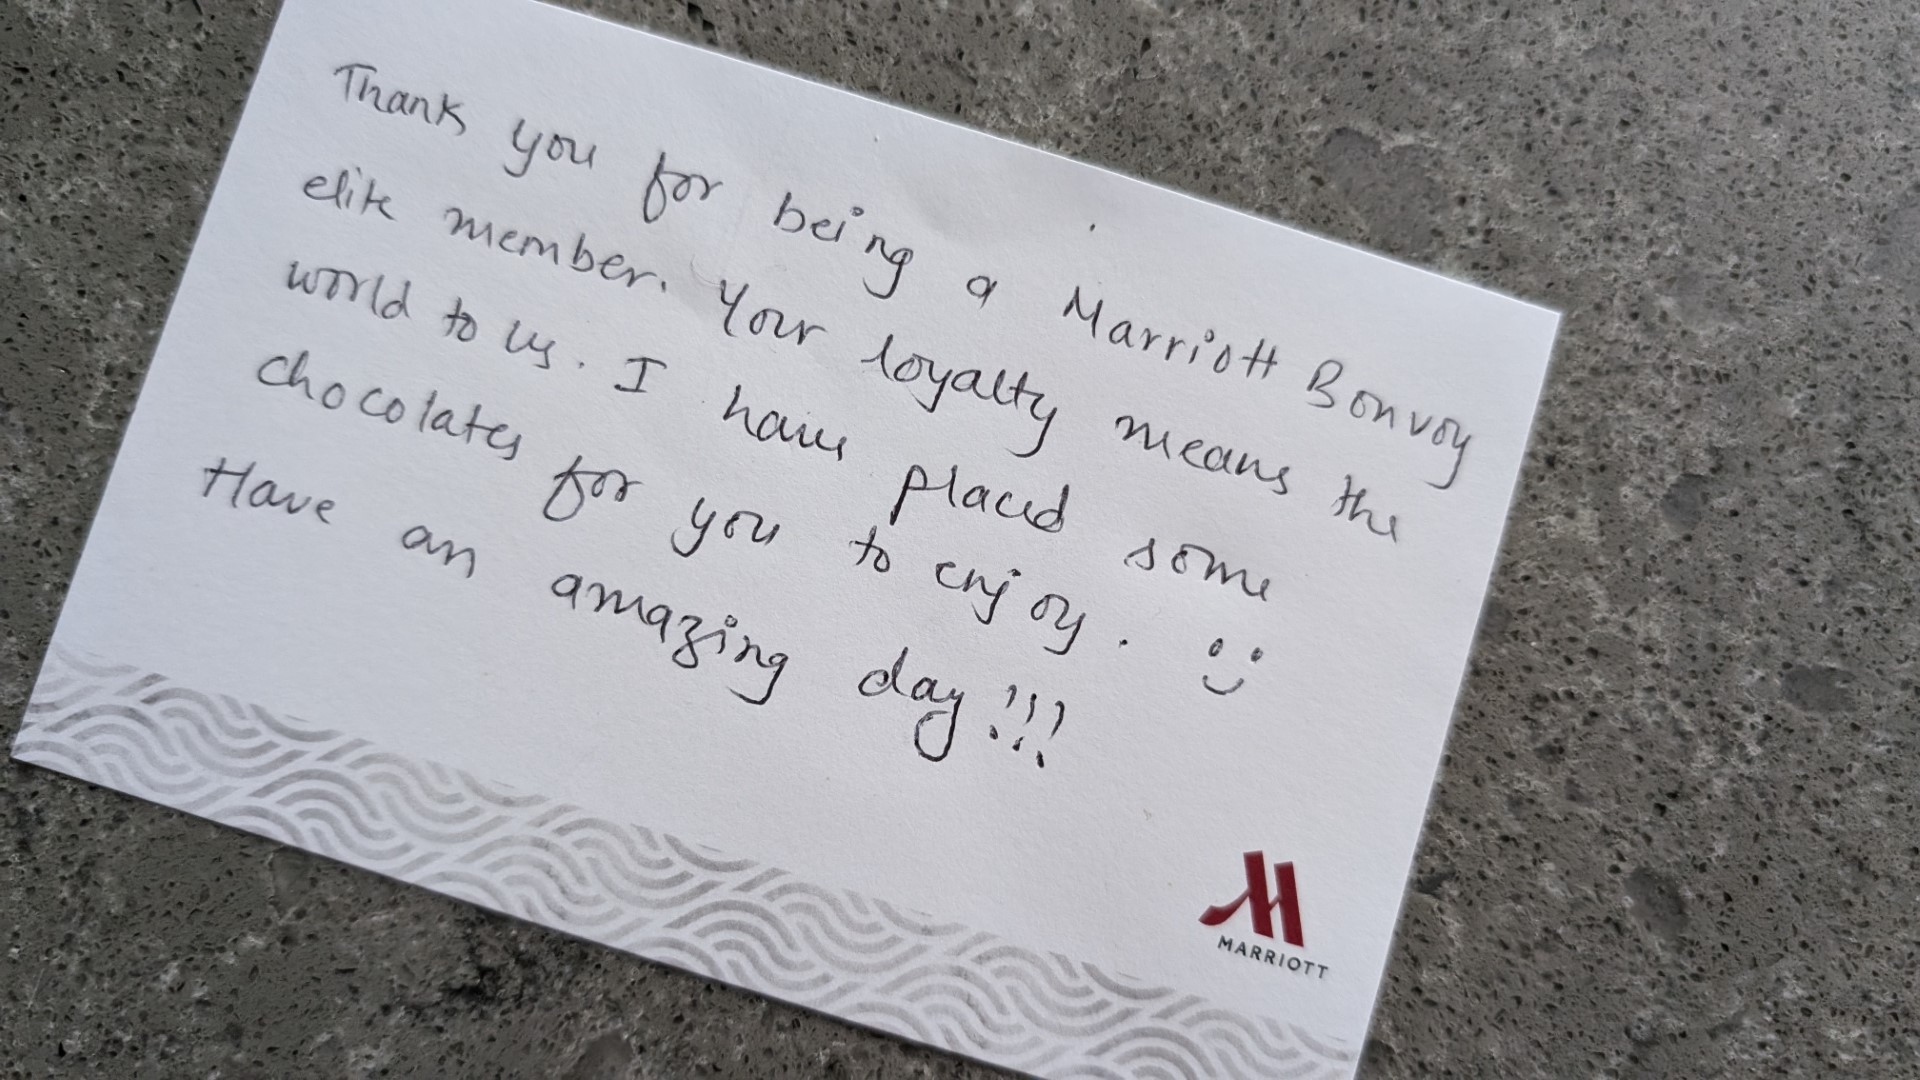 Thank you for being a Marriott Bonvoy
elite member. Your loyalty means the
world to us. I have placed some
chocolates for you to enjoy. :)
Have an amazing day!!!
MARRIOTT